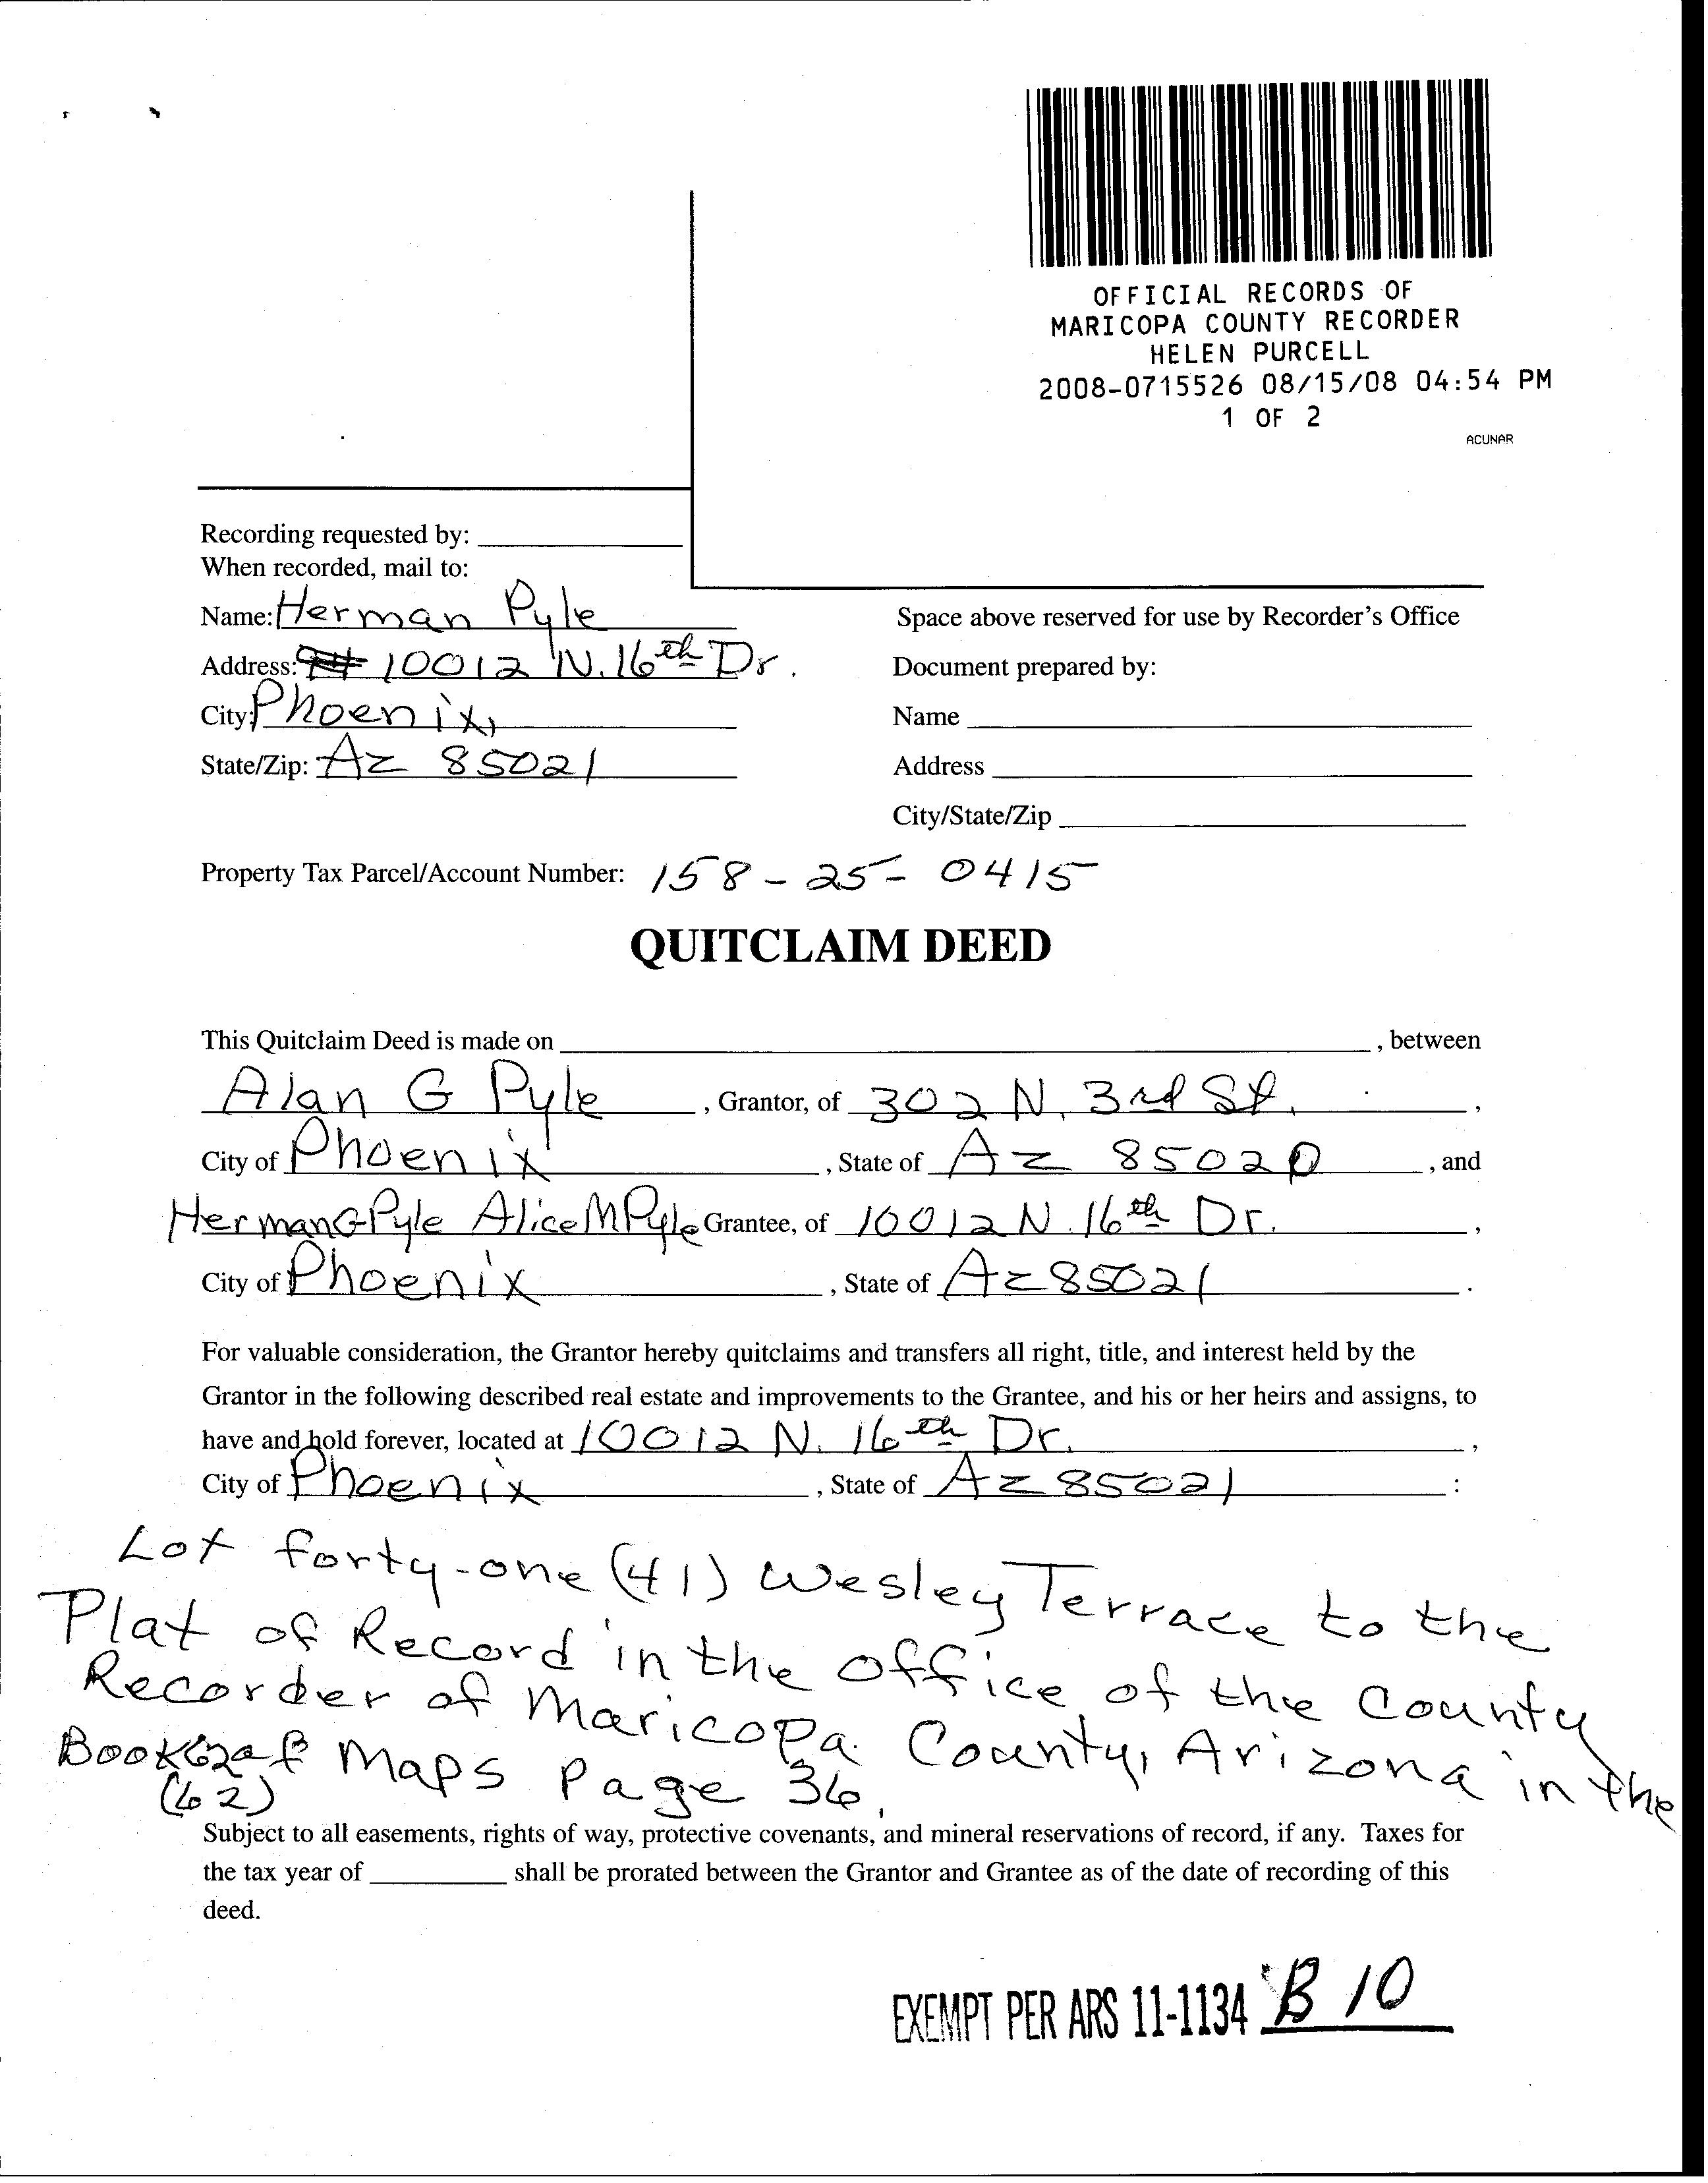 OFFICIAL RECORDS OF
MARICOPA COUNTY RECORDER
HELEN PURCELL
2008-0715526 08/15/08 04:54 PM
1 OF 2
ACUNAR
Recording requested by:
When recorded, mail to:
Name: Herman Pyle
Address: 10012 N. 16th Dr.
City: Phoenix,
State/Zip: Az 85021
Space above reserved for use by Recorder's Office
Document prepared by:
Name
Address
City/State/Zip
Property Tax Parcel/Account Number: 158-25-0415
QUITCLAIM DEED
This Quitclaim Deed is made on , between
Alan G Pyle , Grantor, of 302 N. 3rd St. ,
City of Phoenix , State of Az 85020 , and
Herman G Pyle Alice M Pyle Grantee, of 10012 N. 16th Dr. ,
City of Phoenix , State of Az 85021 .
For valuable consideration, the Grantor hereby quitclaims and transfers all right, title, and interest held by the
Grantor in the following described real estate and improvements to the Grantee, and his or her heirs and assigns, to
have and hold forever, located at 10012 N. 16th Dr. ,
City of Phoenix , State of Az 85021 :
Lot forty-one (41) Wesley Terrace to the
Plat of Record in the office of the County
Recorder of Maricopa County, Arizona in the
Book 62 of Maps Page 36.
(62)
Subject to all easements, rights of way, protective covenants, and mineral reservations of record, if any. Taxes for
the tax year of shall be prorated between the Grantor and Grantee as of the date of recording of this
deed.
EXEMPT PER ARS 11-1134 B 10